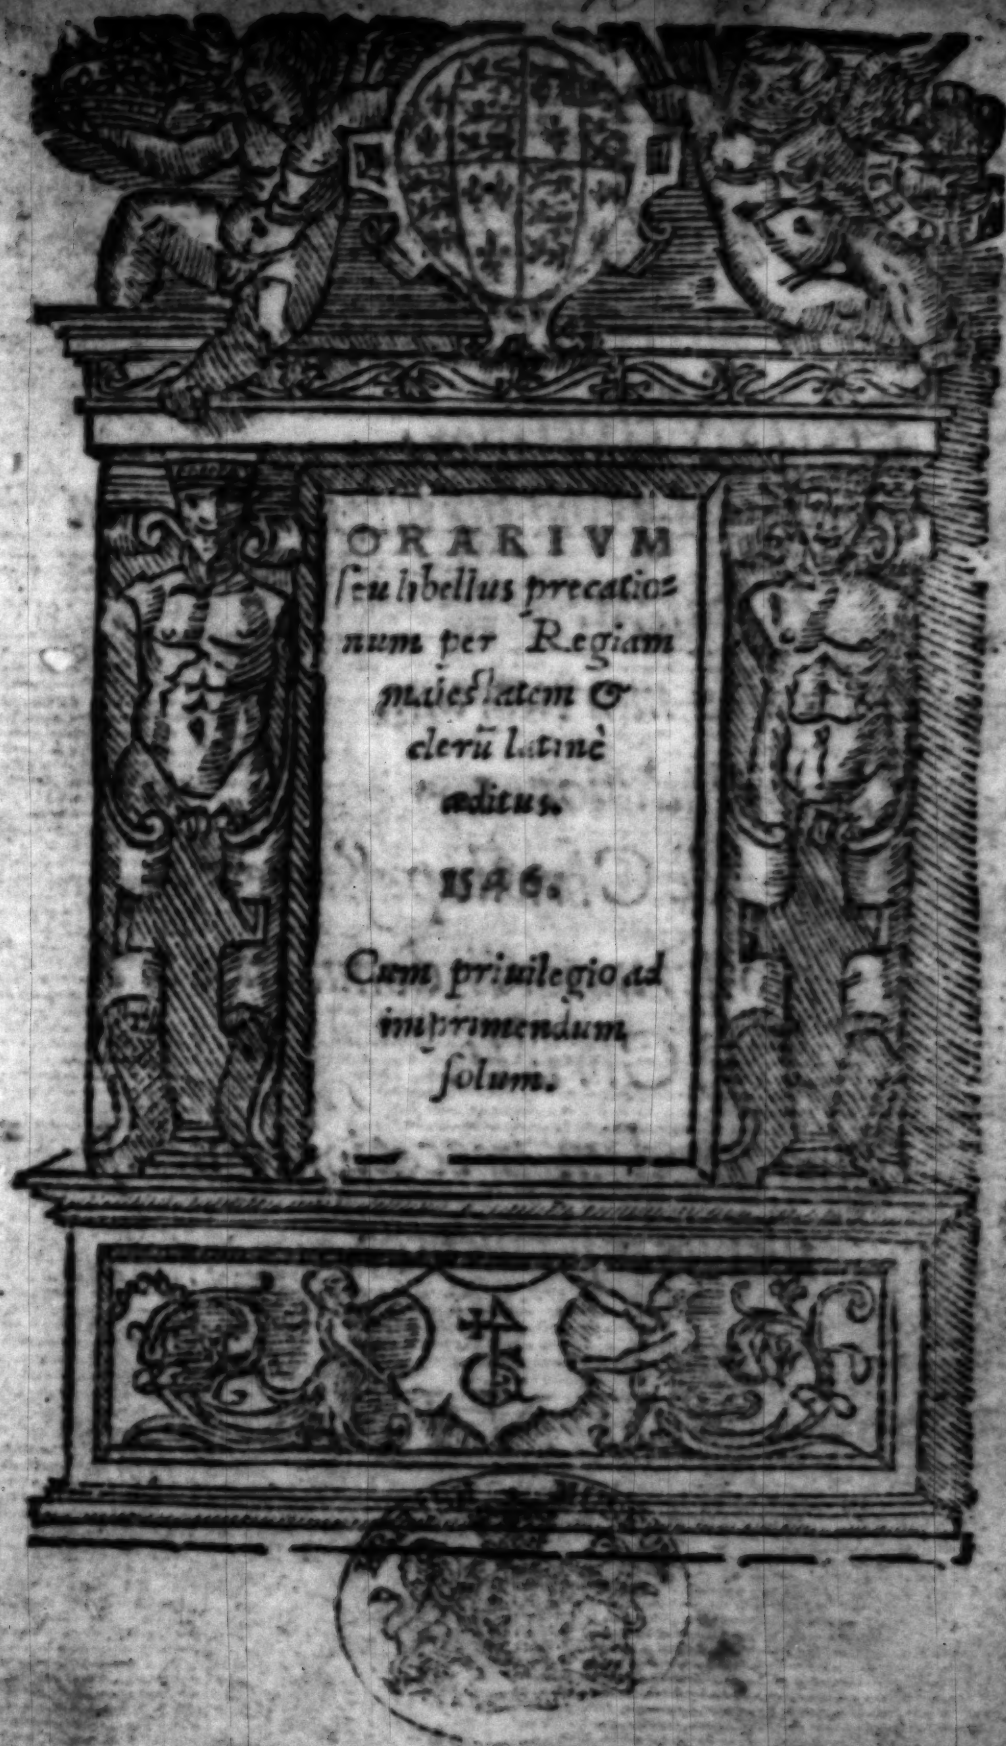 ORARIVM
ſeu libellus precatio=
num per Regiam
maieſtatem &
clerū latinè
æditus.
1546.
Cum priuilegio ad
imprimendum
ſolum.